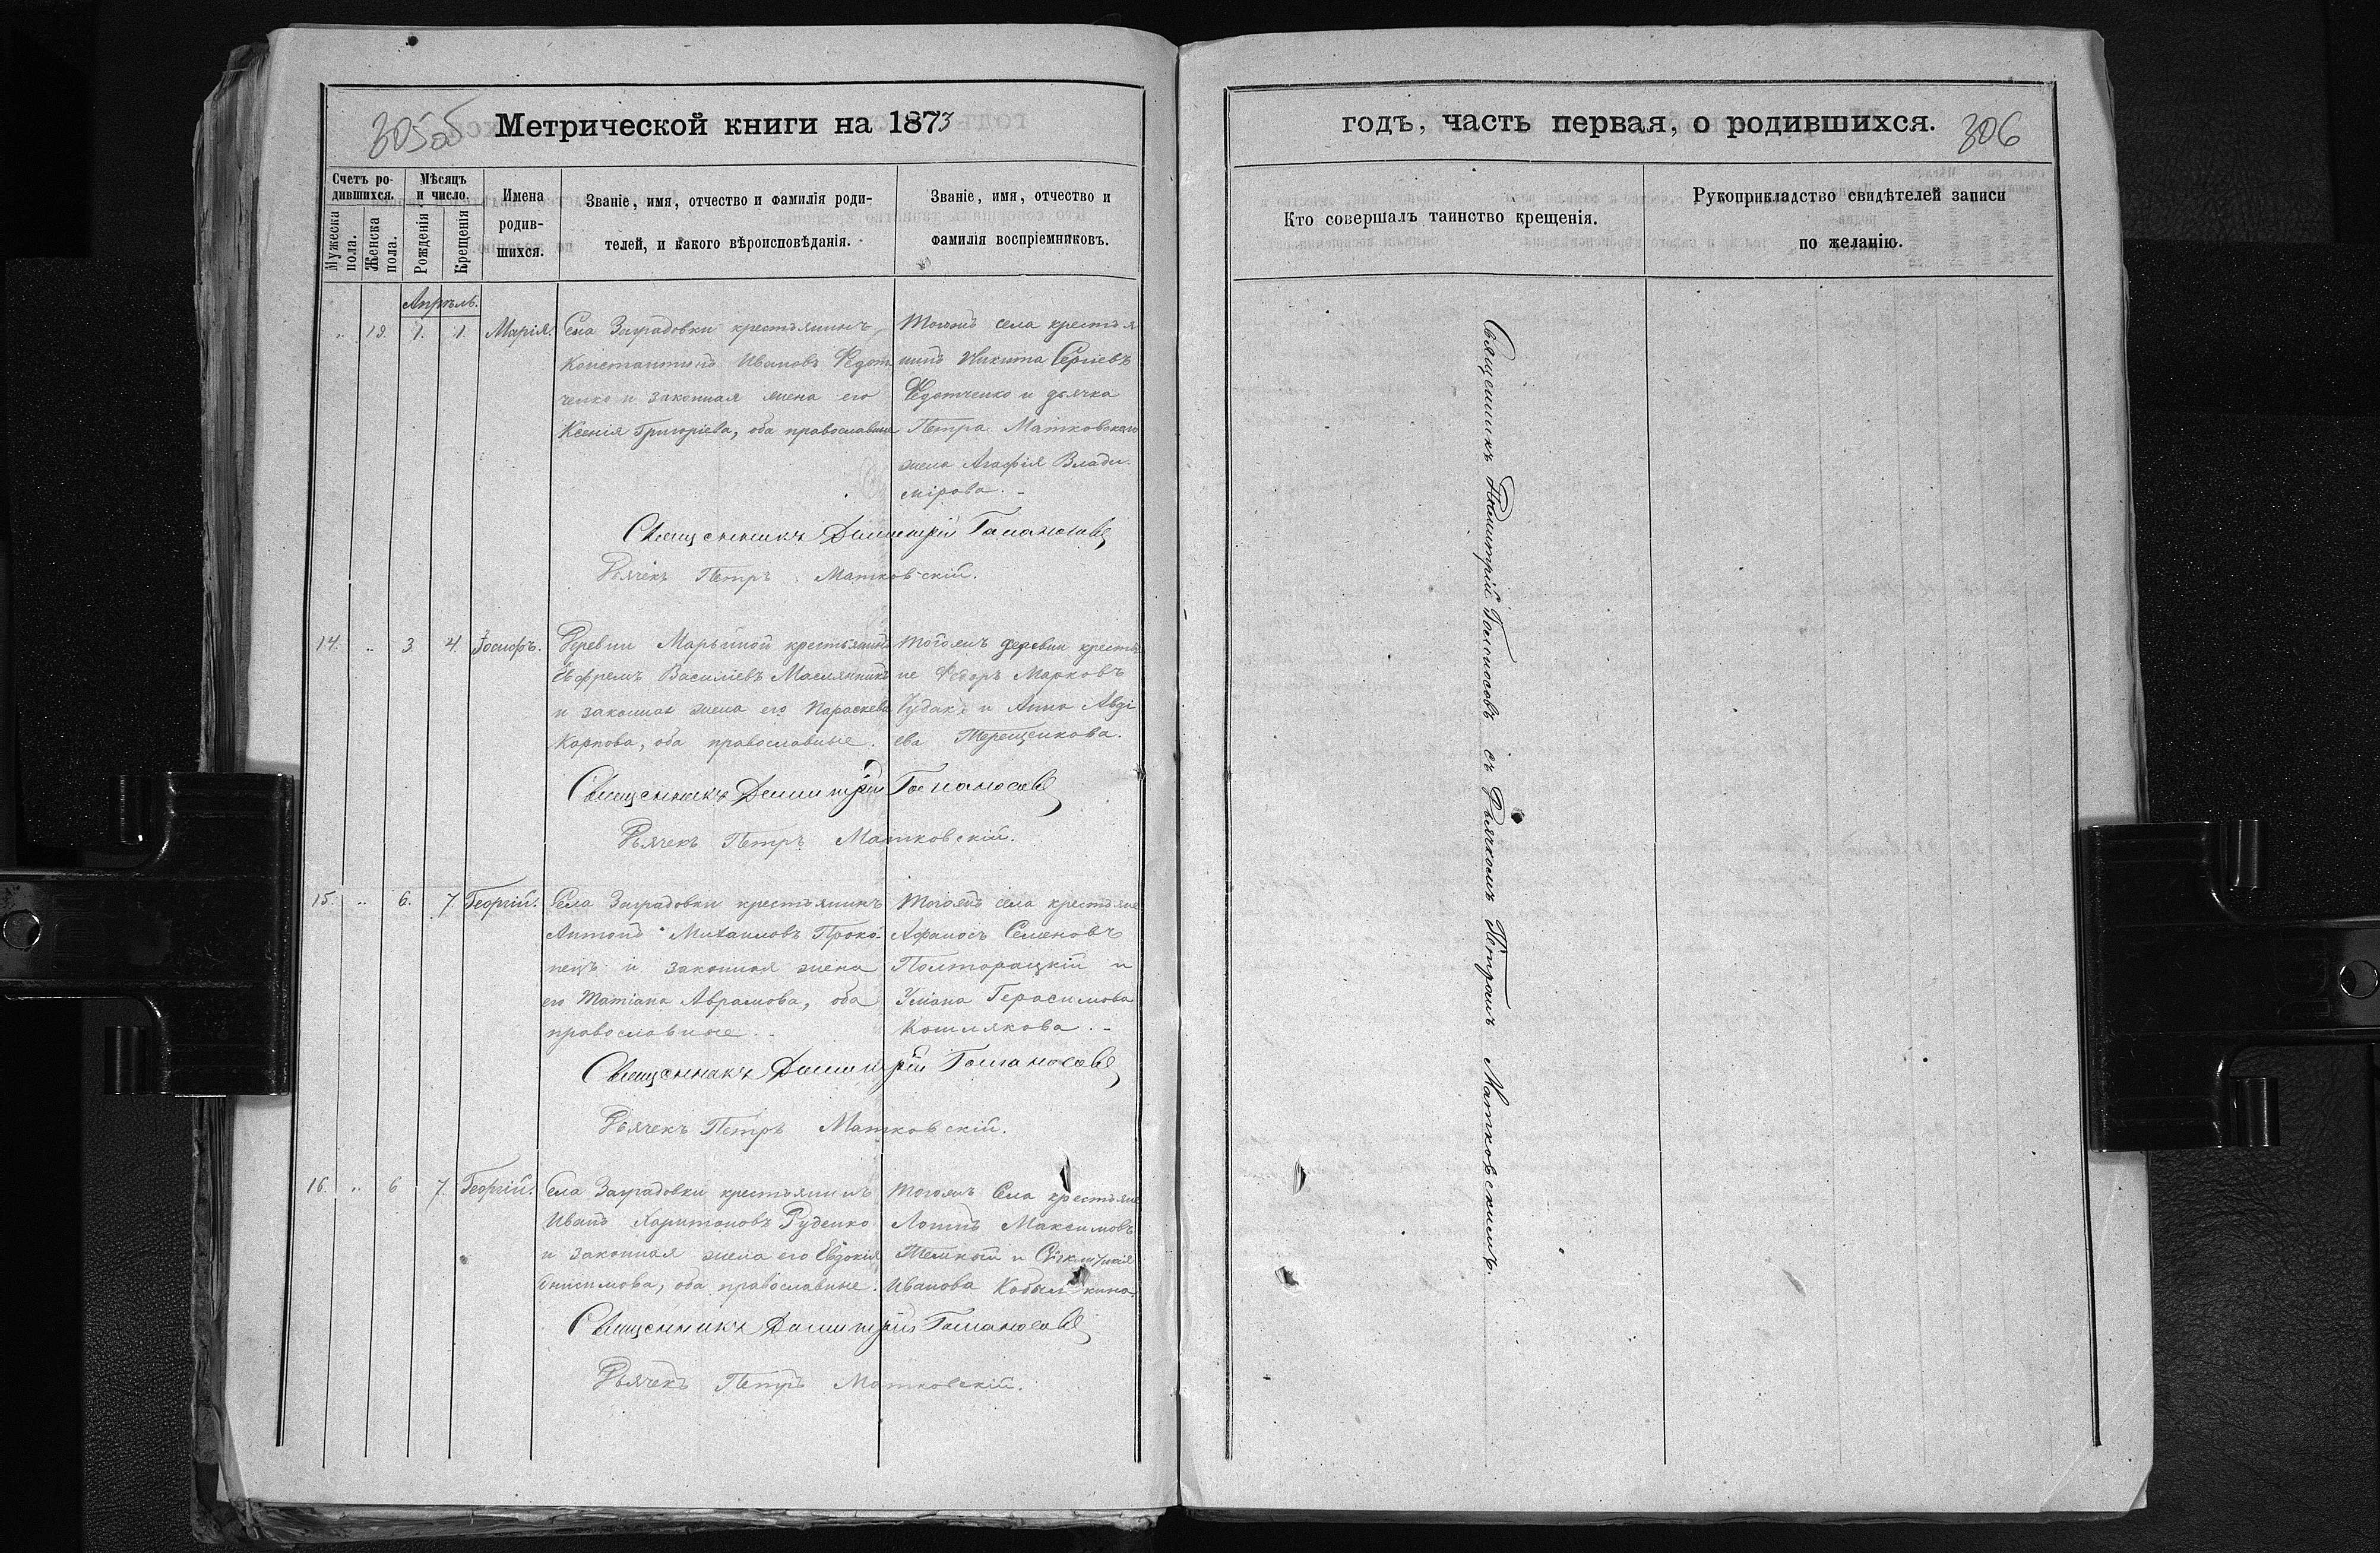 305об
Метрической книги на 1873
годъ, часть первая, о родившихся.
306
Счетъ ро-
дившихся.
Мужеска
пола.
Женска
пола.
Мѣсяцъ
и число.
Рожденія
Крещенія
Имена
родив-
шихся.
Званіе, имя, отчество и фамилія роди-
телей, и какого вѣроисповѣданія.
Званіе, имя, отчество и
фамилія воспріемниковъ.
Кто совершалъ таинство крещенія.
Рукоприкладство свидѣтелей записи
по желанію.
Апрѣль.
„ 12. 1. 1. Марія.
Села Заградовки крестьянинъ
Константинъ Ивановъ Федот
ченко и законная жена его
Ксенія Григоріева, оба православные
Тогожъ села крестья
нинъ Никита Сергіевъ
Федотченко и дьячка
Петра Матковскаго
жена Агафія Влади-
мірова. -
Священникъ Димитрій
Дьячекъ Петръ Матковскій.
14. „ 3. 4. Іосифъ.
Деревни Марьиной крестьянинъ
Ефремъ Василіевъ Маслянникъ
и законная жена его Параскева
Карпова, оба православные.
Тогожъ деревни крестья
не Федоръ Марковъ
Чудакъ и Анна Авді
ева Терещенкова.
Священникъ Димитрій
Дьячекъ Петръ Матковскій.
15. „ 6. 7. Георгій.
Села Заградовки крестьянинъ
Антонъ Михаиловъ Проко-
пецъ и законная жена
его Татіана Аврамова, оба
православные. -
Тогожъ села крестьяне
Афанасъ Семеновъ
Полторацкій и
Уліана Герасимова
Кошлякова. -
Священникъ Димитрій
Дьячекъ Петръ Матковскій.
16. „ 6 7. Георгій.
Села Заградовки крестьянинъ
Иванъ Харитоновъ Руденко
и законная жена его Евдокія
Онисимова, оба православные.
Тогожъ Села крестьяне
Логинъ Максимовъ
Темный и
Иванова
Священникъ Димитрій
Дьячекъ Петръ Матковскій.
Священникъ Димитрій съ Дьячкомъ Петромъ Матковскимъ.